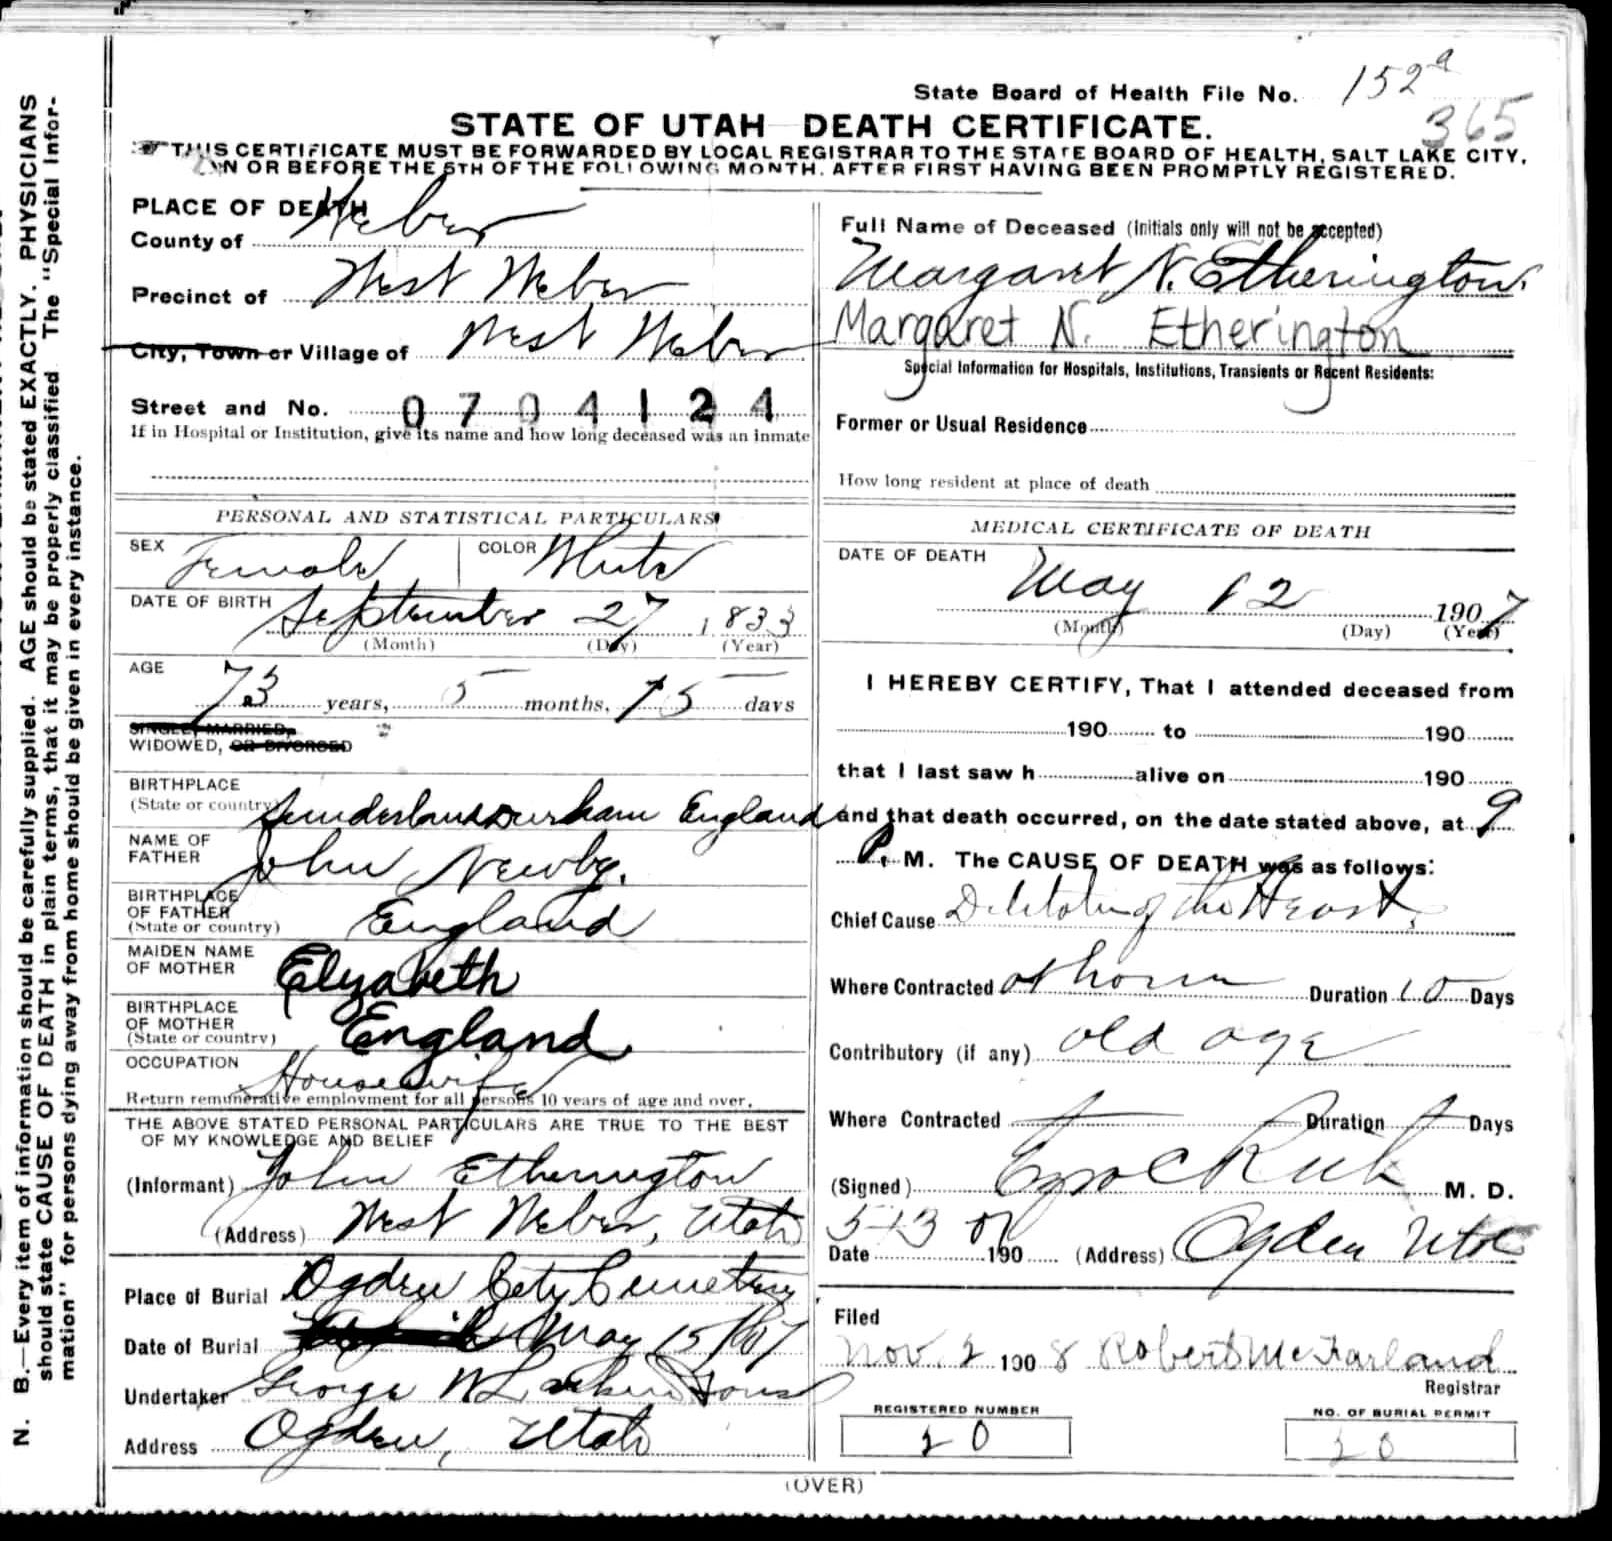 N. B.—Every item of information should be carefully supplied. AGE should be stated EXACTLY. PHYSICIANS
should state CAUSE OF DEATH in plain terms, that it may be properly classified. The "Special Infor-
mation" for persons dying away from home should be given in every instance.
State Board of Health File No. 152a
365
STATE OF UTAH—DEATH CERTIFICATE.
THIS CERTIFICATE MUST BE FORWARDED BY LOCAL REGISTRAR TO THE STATE BOARD OF HEALTH, SALT LAKE CITY,
ON OR BEFORE THE 5TH OF THE FOLLOWING MONTH, AFTER FIRST HAVING BEEN PROMPTLY REGISTERED.
PLACE OF DEATH
County of Weber
Precinct of West Weber
City, Town or Village of West Weber
Street and No. 0704124
If in Hospital or Institution, give its name and how long deceased was an inmate
Full Name of Deceased (Initials only will not be accepted)
Margaret N. Etherington.
Margaret N. Etherington
Special Information for Hospitals, Institutions, Transients or Recent Residents:
Former or Usual Residence
How long resident at place of death
PERSONAL AND STATISTICAL PARTICULARS
SEX Female COLOR White
DATE OF BIRTH September 27 1833
(Month) (Day) (Year)
AGE
73 years, 5 months, 15 days
SINGLE, MARRIED,
WIDOWED, OR DIVORCED
BIRTHPLACE
(State or country) Sunderland Durham England
NAME OF
FATHER John Newby.
BIRTHPLACE
OF FATHER
(State or country) England
MAIDEN NAME
OF MOTHER Elyzabeth
BIRTHPLACE
OF MOTHER
(State or country) England
OCCUPATION Housewife
Return remunerative employment for all persons 10 years of age and over.
THE ABOVE STATED PERSONAL PARTICULARS ARE TRUE TO THE BEST
OF MY KNOWLEDGE AND BELIEF
(Informant) John Etherington
(Address) West Weber, Utah
Place of Burial Ogden City Cemetery
Date of Burial May 15/07
Undertaker George W Larkin Sons
Address Ogden, Utah
MEDICAL CERTIFICATE OF DEATH
DATE OF DEATH
May 12 1907
(Month) (Day) (Year)
I HEREBY CERTIFY, That I attended deceased from
190 to 190
that I last saw h alive on 190
and that death occurred, on the date stated above, at 9
P. M. The CAUSE OF DEATH was as follows:
Chief Cause of the Heart
Where Contracted at home Duration 10 Days
Contributory (if any) old age
Where Contracted Duration Days
(Signed) M. D.
Date 5-13 07 190 (Address) Ogden Utah
Filed
Nov. 2 1908 Robert McFarland
Registrar
REGISTERED NUMBER
20
NO. OF BURIAL PERMIT
20
(OVER)